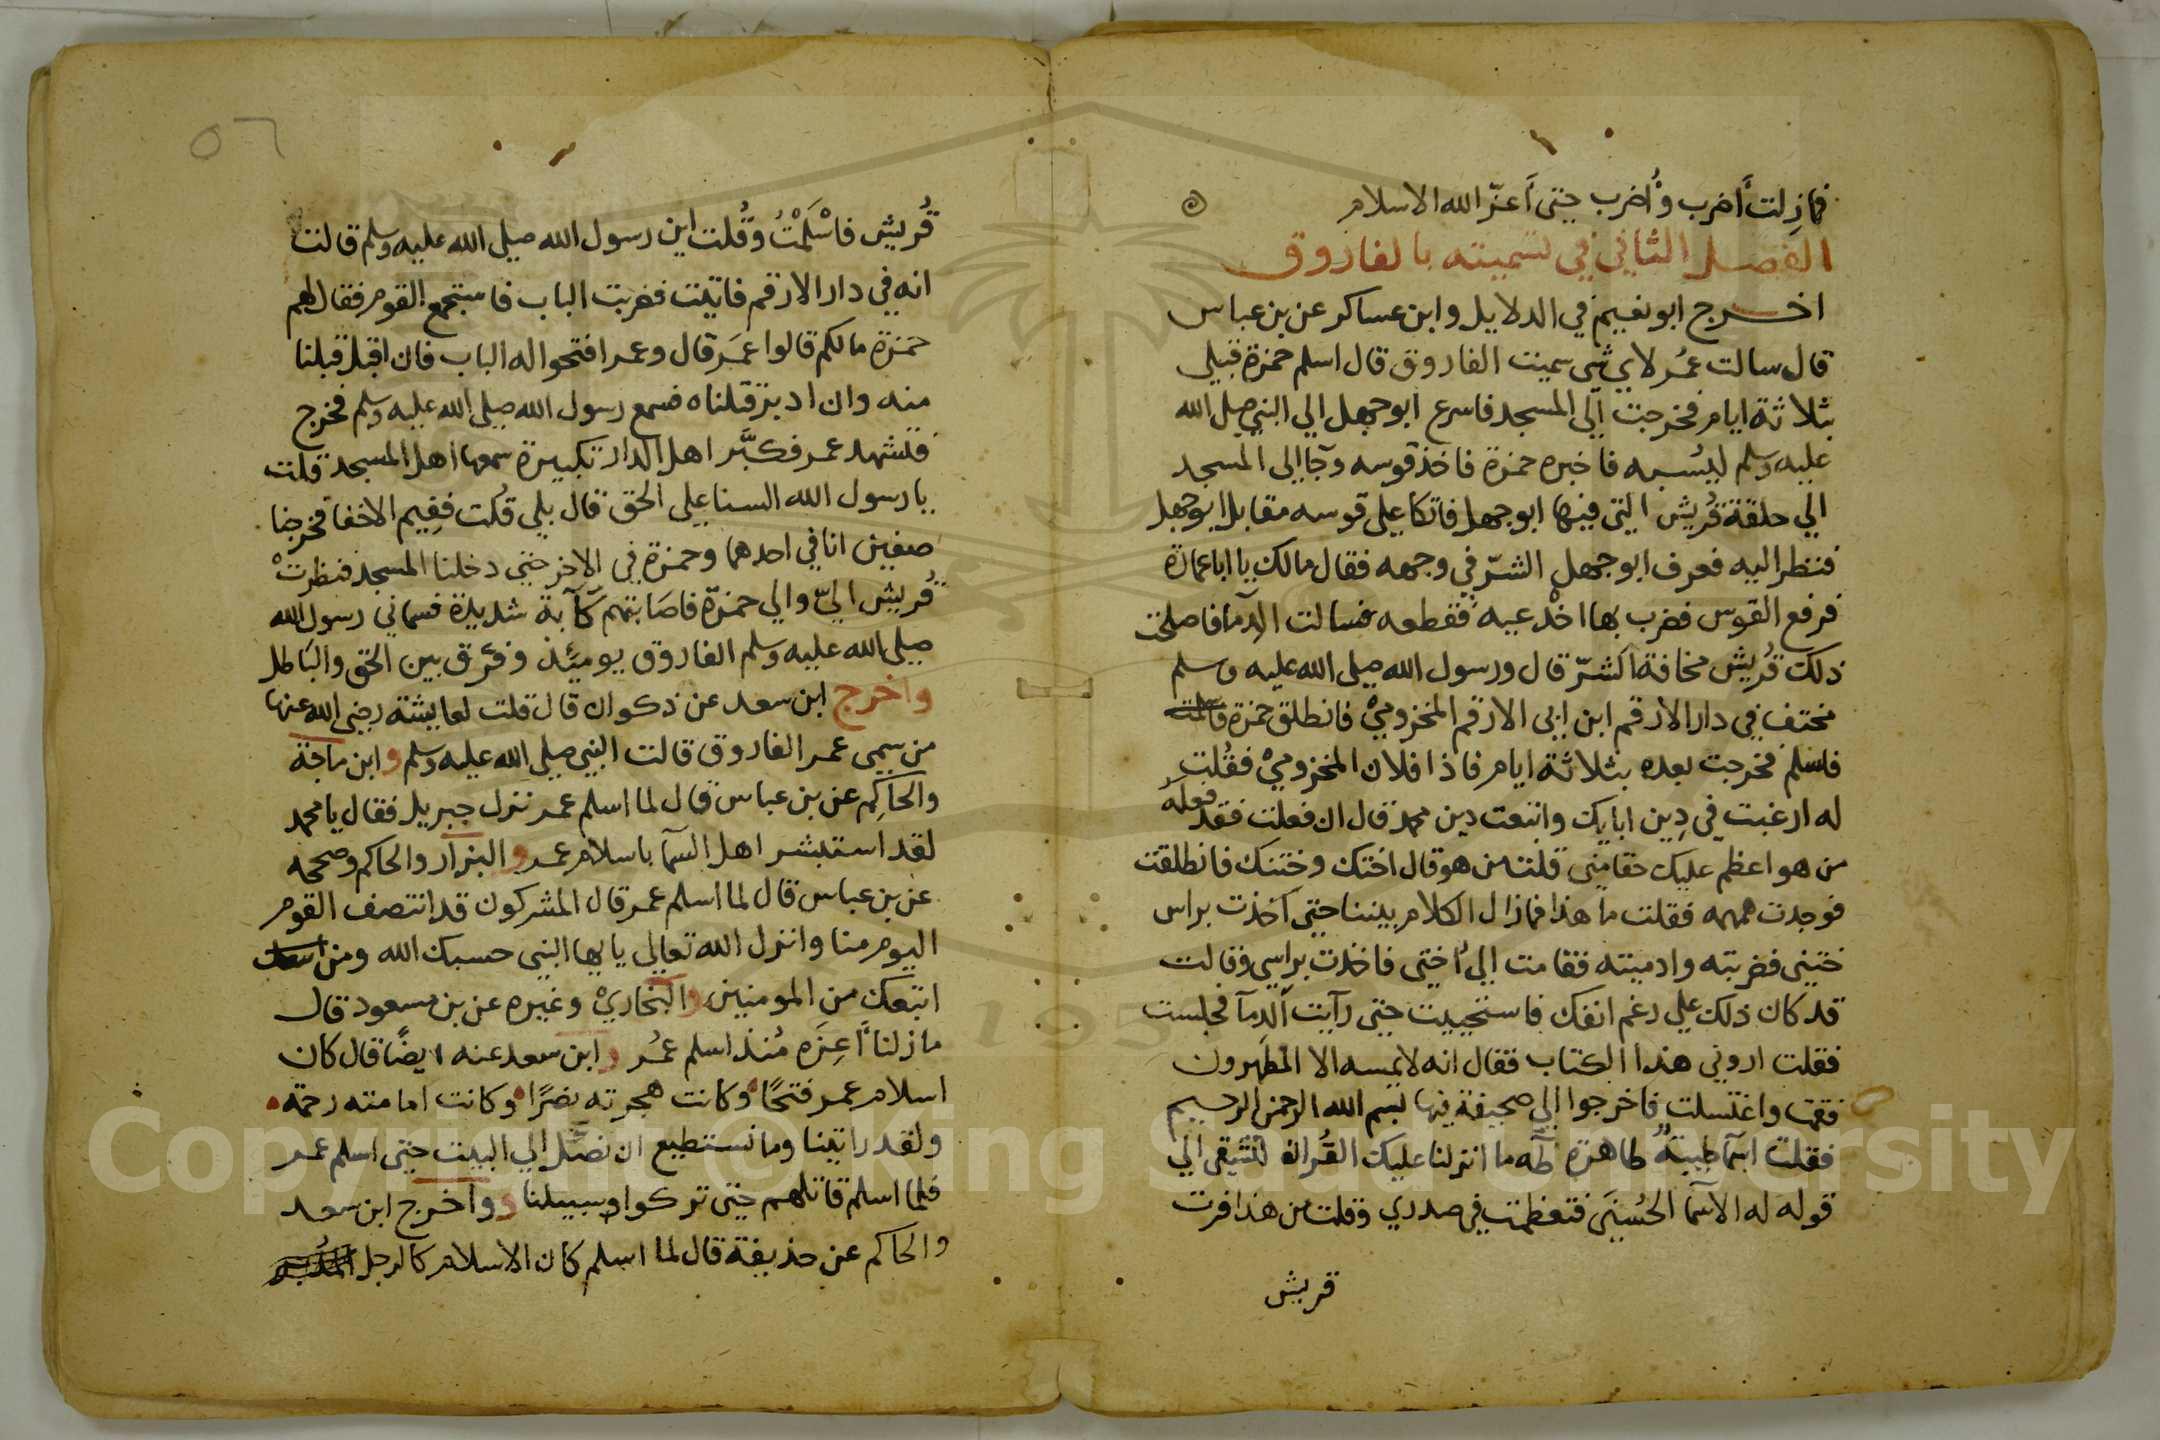 فما زلت أضرب وأُضرب حتى أعزّ الله الاسلام
الفصل الثاني في تسميته بالفاروق
اخرج ابو نعيم في الدلايل وابن عساكر عن بن عباس
قال سالت عمُر لاي شي سميت الفاروق قال اسلم حمزة قبلي
بثلاثة ايام فخرجت الي المسجد فاسرع ابو جهل الي النبي صلى الله
عليه وسلم ليسبه فاخبره حمزة فاخذ قوسه وجآ الى المسجد
الي حلقة قُريش التي فيها ابو جهل فاتكا على قوسه مقابل ابو جهل
فنظر اليه فعرف ابو جهل الشرّ في وجهه فقال مالك يا ابا عمارة
فرفع القوس فضرب بها اخْدعيه فقطعه فسالت الدمآ فاصلحت
ذلك قُريش مخافة الشرّ قال ورسول الله صلى الله عليه وسلم
مختف في دار الارقم ابن ابي الارقم المخزوميْ فانطلق حمزة
فاسلم فخرجت بعده بثلاثة ايام فاذا فلان المخزوميْ فقُلت
له ارغبت في دِين ابايك واتبعت دين محمد قال ان فعلت فقد فعلهُ
من هو اعظم عليك حقا منى قلت من هو قال اختك وختنك فانطلقت
فوجدت همهمه فقلت ما هذا فما زال الكلام بيننا حتى اخذت براس
ختنى فضربته وادميته فقامت الي اُختى فاخذت براسي وقالت
قد كان ذلك على رغم انفك فاستحييت حتى رآيت الدمآ فجلست
فقلت اروني هذا الكتاب فقال انه لا يمسه الا المطهرون
فقمت واغتسلت فاخرجوا الي صحيفة فيها بسم الله الرحمن الرحيم
فقلت اسمآ طيبةٌ طاهرة طه ما انزلنا عليك القُران لتشقى الي
قوله له الاسمآ الحُسنَى فتعظمت في صدري وقلت من هذا فرت
قريش
٥٦
قُريش فاسْلَمْتُ وقُلت اين رسول الله صلى الله عليه وسلم قالت
انه في دار الارقم فاتيت فضربت الباب فاستجمع القوم فقال لهم
حمزة مالكم قالوا عمَر قال وعمر افتحوا له الباب فان اقبل قبلنا
منه وان ادبر قتلناه فسمع رسول الله صلى الله عليه وسلم فخرج
فتشهد عمر فكبَّر اهل الدار تكبيرة سمعها اهل المسجد قلت
يا رسول الله السنا على الحق قال بلي قُلت ففِيم الاخفا فخرجنا
صفين انا في احدهما وحمزة في الاخر حتى دخلنا المسجد فنظرتْ
قُريش اليّ والي حمزة فاصَابتهم كآبة شديدة فسماني رسول الله
صلى الله عليه وسلم الفاروق يوميَّذ وفرّق بين الحق والباطل
واخرج ابن سعد عن ذكوان قال قلت لعايشة رضى الله عنها
من سمى عمر الفاروق قالت النبي صلى الله عليه وسلم وابن ماجة
والحاكِم عن بن عباس قال لما اسلم عمر نزل جبريل فقال يا محمد
لقد استبشر اهل السمآ باسلام عمر والبزار والحاكم وصححه
عن بن عباس قال لما اسلم عمر قال المشركون قد انتصف القوم
اليوم منا وانزل الله تعالي يا يها النبي حسبك الله ومن
اتبعك من المومنين والبخاريْ وغيره عن بن مسعود قال
ما زلنا أعِزَه مُنذ اسلم عمُر وابن سعد عنه ايضًا قال كان
اسلام عمر فتحًا وكانت هجرته نصرًا وكانت امامته رحمة
ولقد رايتنا وما نستطيع ان نصَل الي البيت حتى اسلم عمر
فلما اسلم قاتلهم حتى تركوا وسبيلنا وواخرج ابن سعد
والحاكم عن حذيفة قال لما اسلم كان الاسلام كالرجل